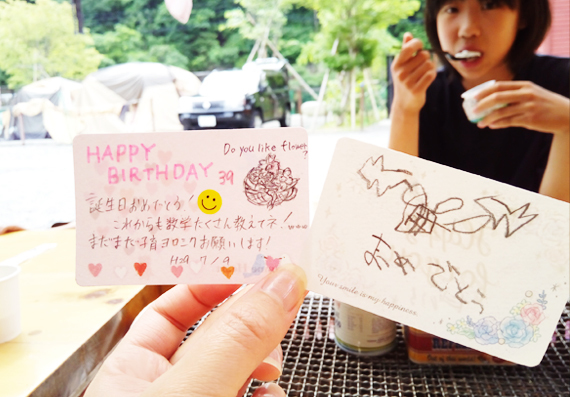 HAPPY
BIRTHDAY 39
Do you like flower?
誕生日おめでとう!
これからも数学たくさん教えてネ!
まだまだ子育ヨロシクお願いします!
H29.7/9
おめでとう
Your smile is my happiness.